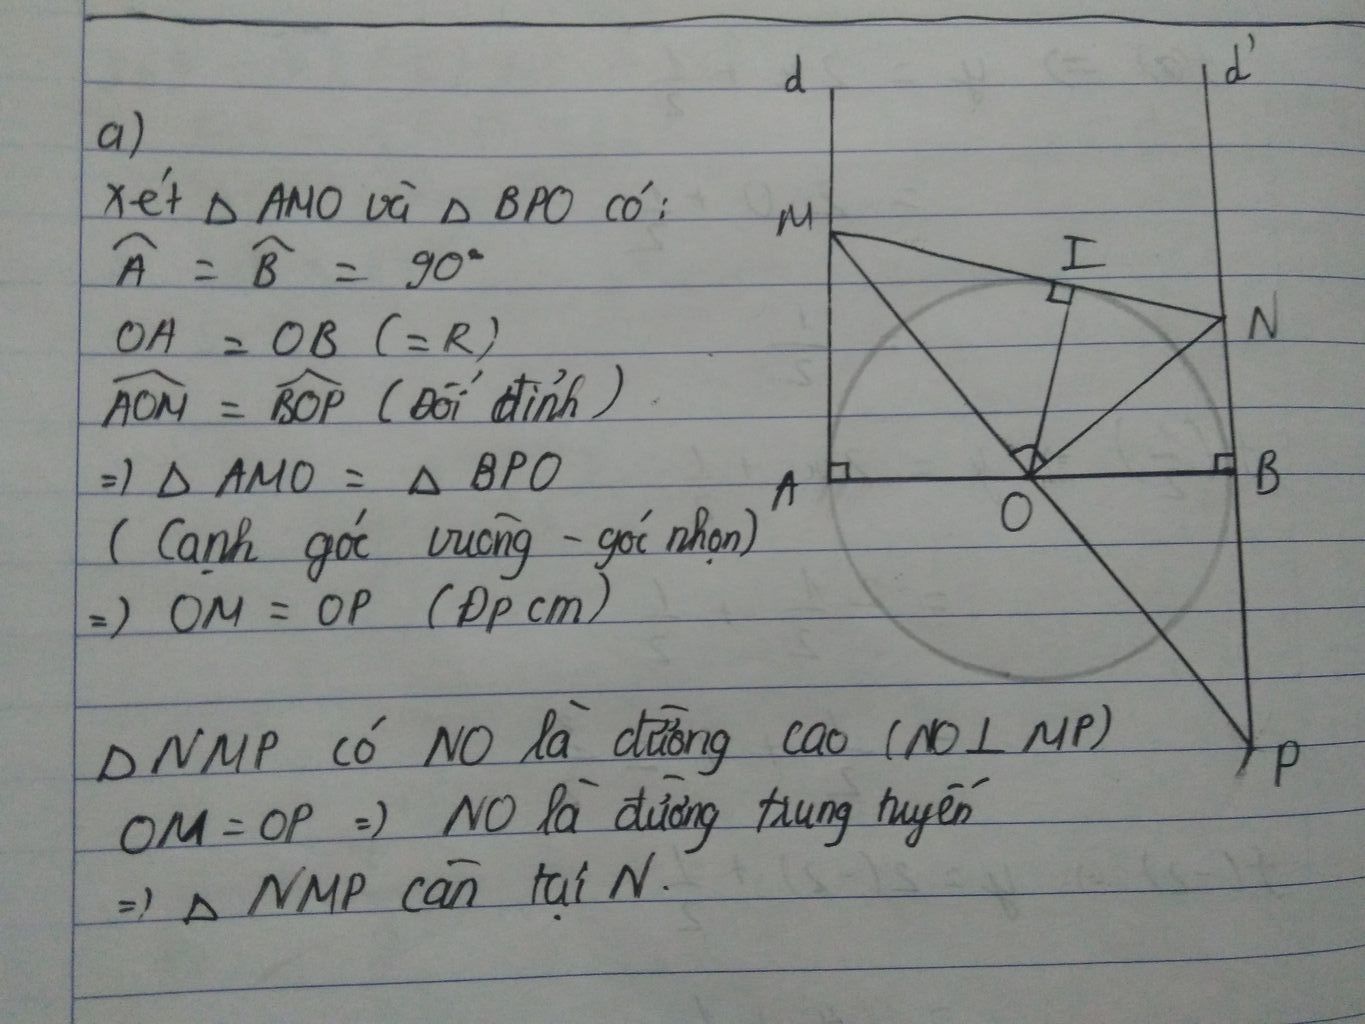 a)
Xét Δ AMO và Δ BPO có:
Â = B̂ = 90°
OA = OB (=R)
AOM = BOP (Đối đỉnh)
=) Δ AMO = Δ BPO
(Cạnh góc vuông - góc nhọn)
=) OM = OP (Đpcm)
Δ NMP có NO là đường cao (NO ⊥ MP)
OM = OP =) NO là đường trung tuyến
=) Δ NMP cân tại N.
d
d'
M
I
N
A
O
B
P